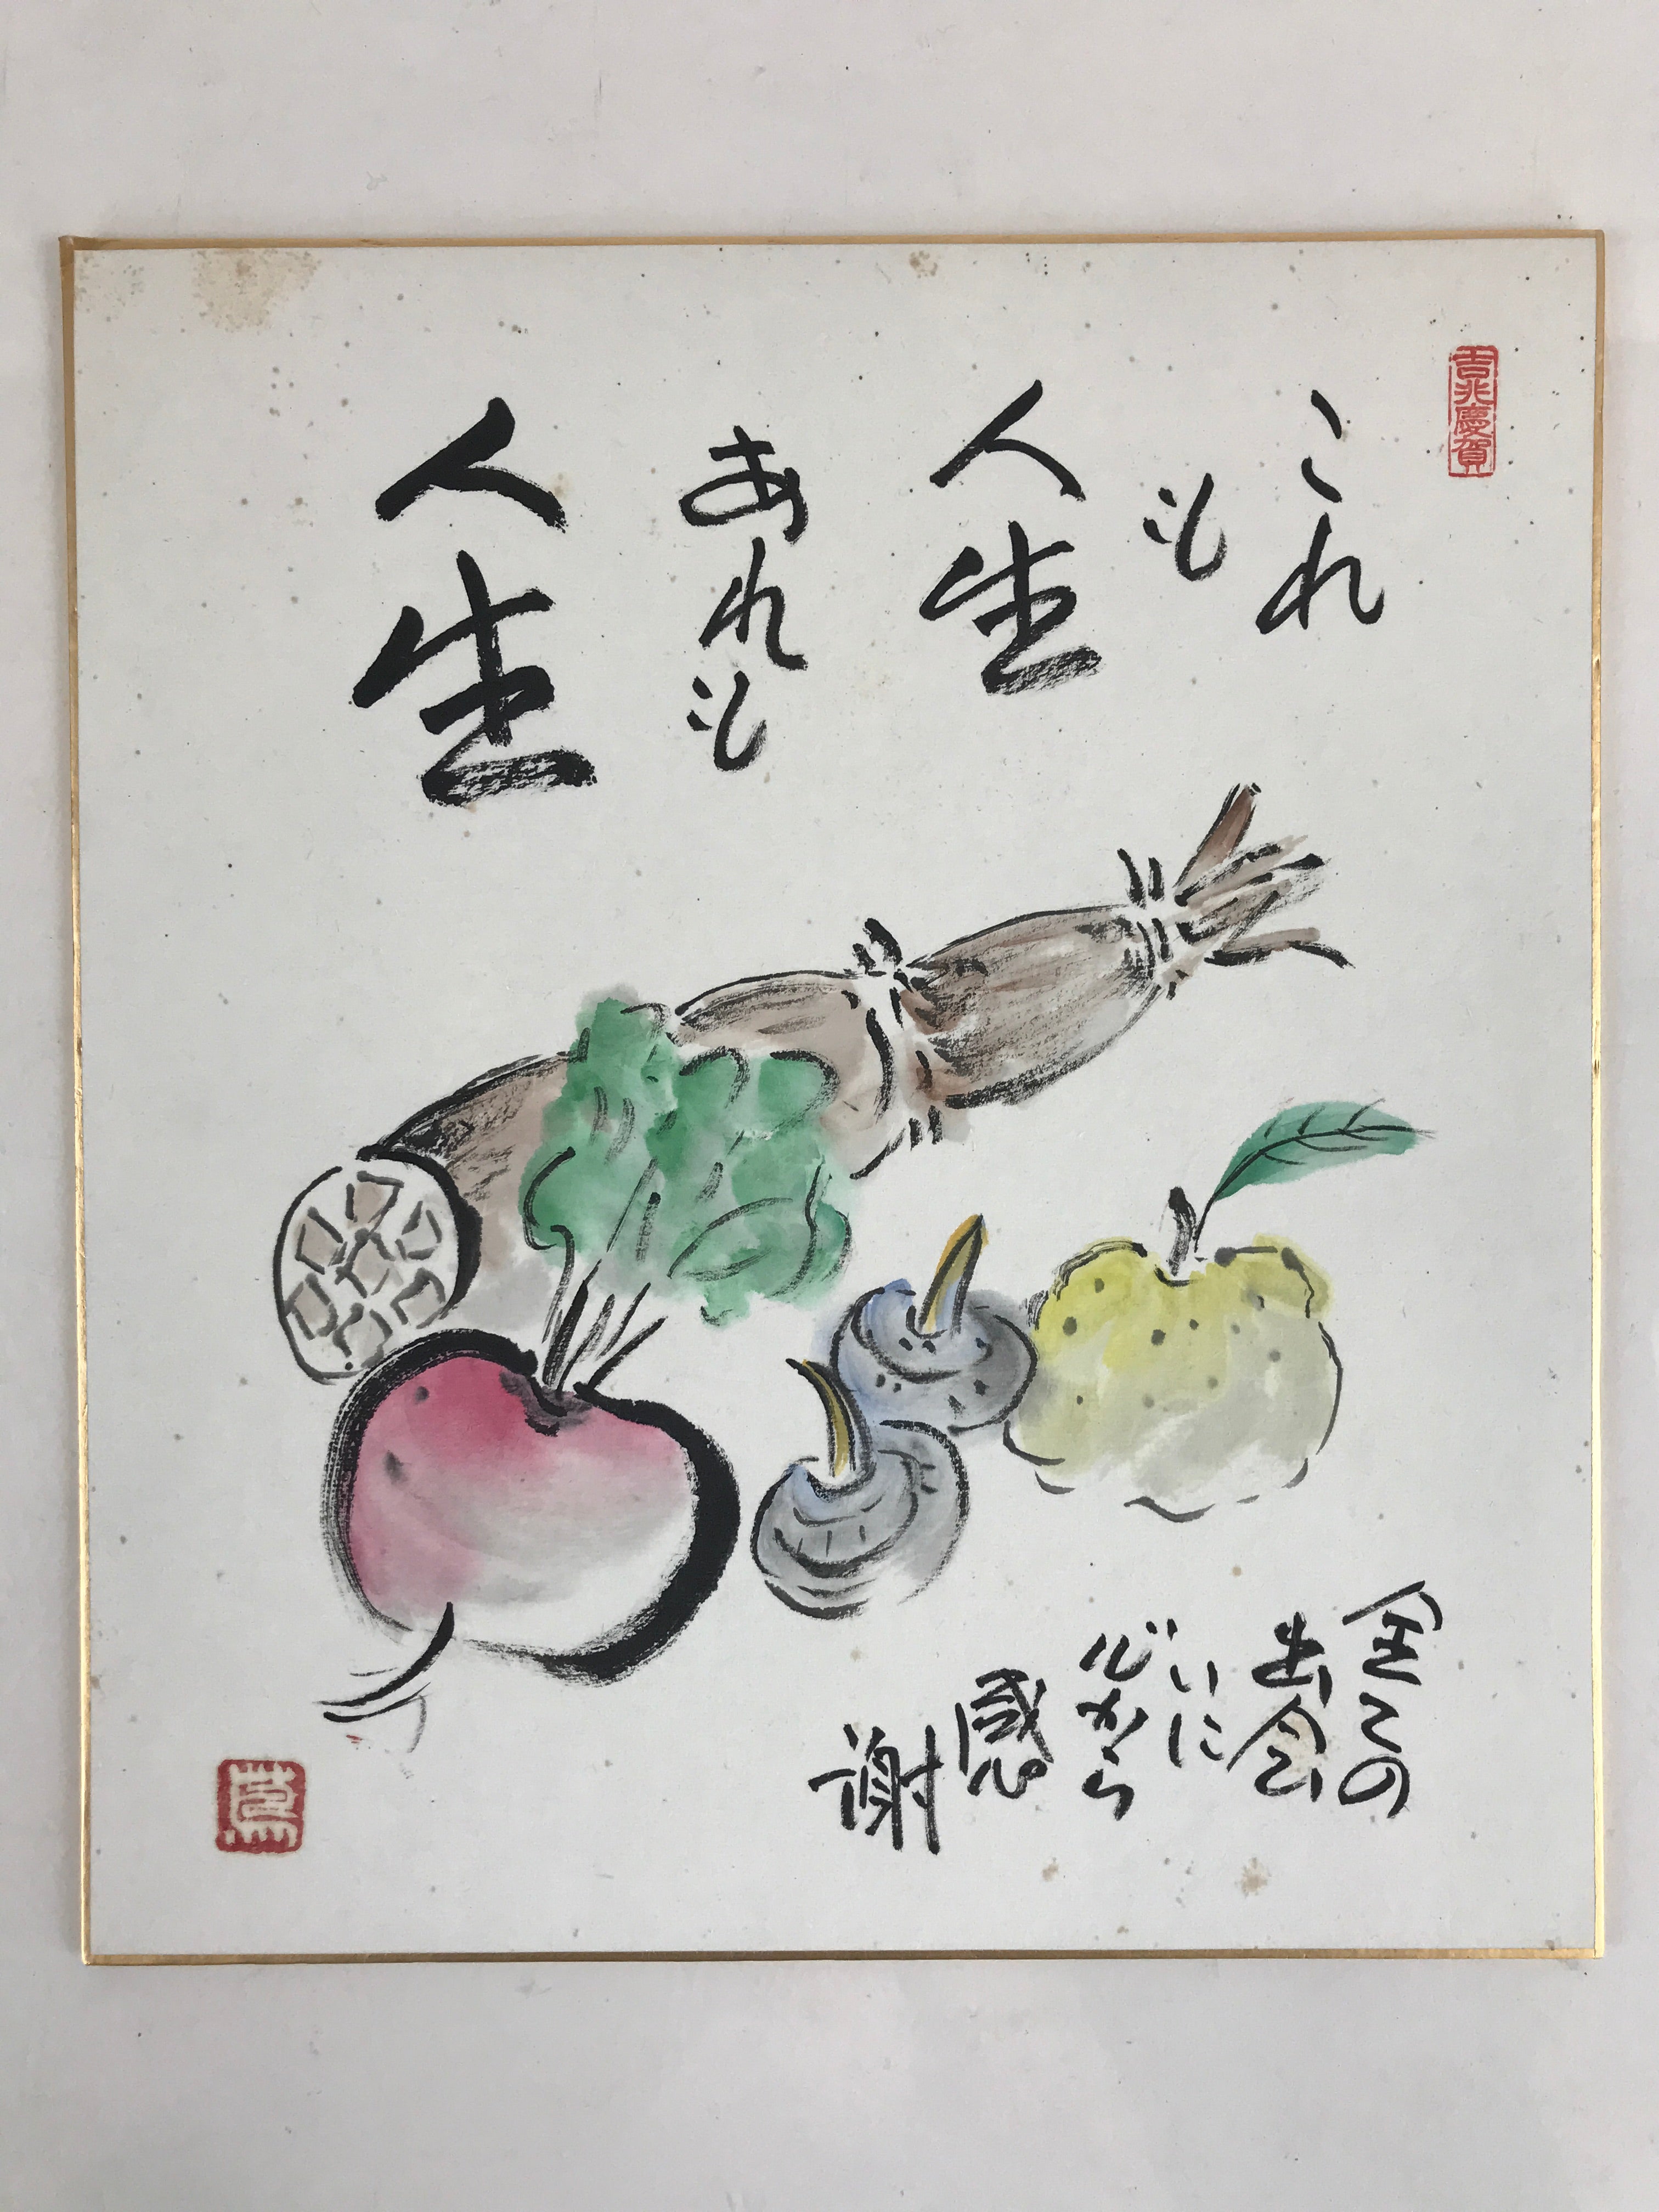 吉兆慶賀
これ
も
人生
あれも
人生
全ての
出会
いに
心から
感
謝